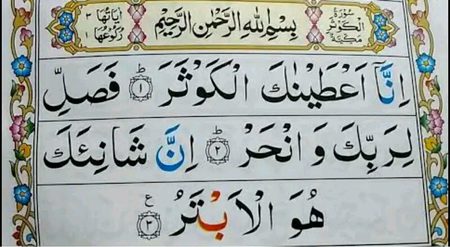 سُوْرَةُ الْكَوْثَرِ مَكِّيَّةٌ بِسْمِ اللهِ الرَّحْمٰنِ الرَّحِيْمِ اٰيَاتُهَا ٣ رُكُوْعُهَا ١
اِنَّاۤ اَعْطَيْنٰكَ الْكَوْثَرَ ؕ ۝١ فَصَلِّ
لِرَبِّكَ وَانْحَرْ ؕ ۝٢ اِنَّ شَانِئَكَ
هُوَ الْاَبْتَرُ ۝٣ ع